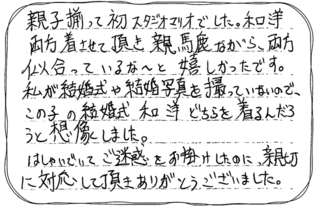 親子揃って初スタジオマリオでした。和洋
両方着させて頂き、親馬鹿ながら、両方
似合っているな〜と嬉しかったです。
私が結婚式や結婚写真を撮っていないので、
この子の結婚式 和洋どちらを着るんだろ
うと想像しました。
はしゃいでいてご迷惑をお掛けしたのに、親切
に対応して頂きありがとうございました。